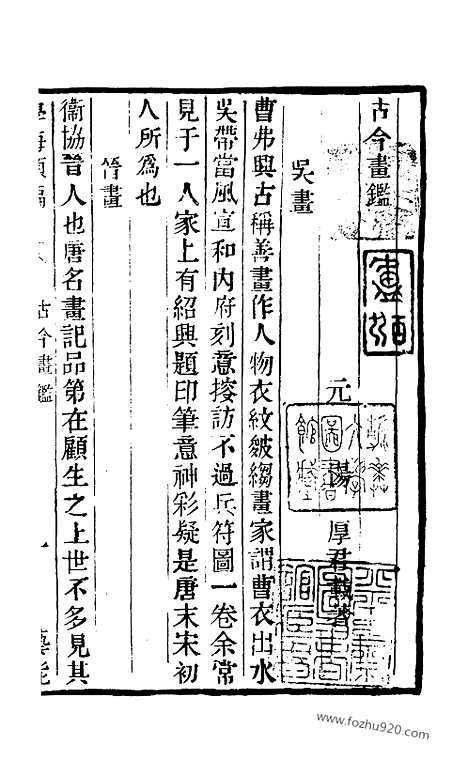 古今畫鑑
元 湯 厚君載著
吳畫
曹弗興古稱善畫作人物衣紋皴縐畫家謂曹衣出水
吳帶當風宣和內府刻意搜訪不過兵符圖一卷余常
見于一人家上有紹興題印筆意神彩疑是唐末宋初
人所為也
晉畫
衞協晉人也唐名畫記品第在顧生之上世不多見其
學海類編
古今畫鑑
一
藝能
www.fozhu920.com